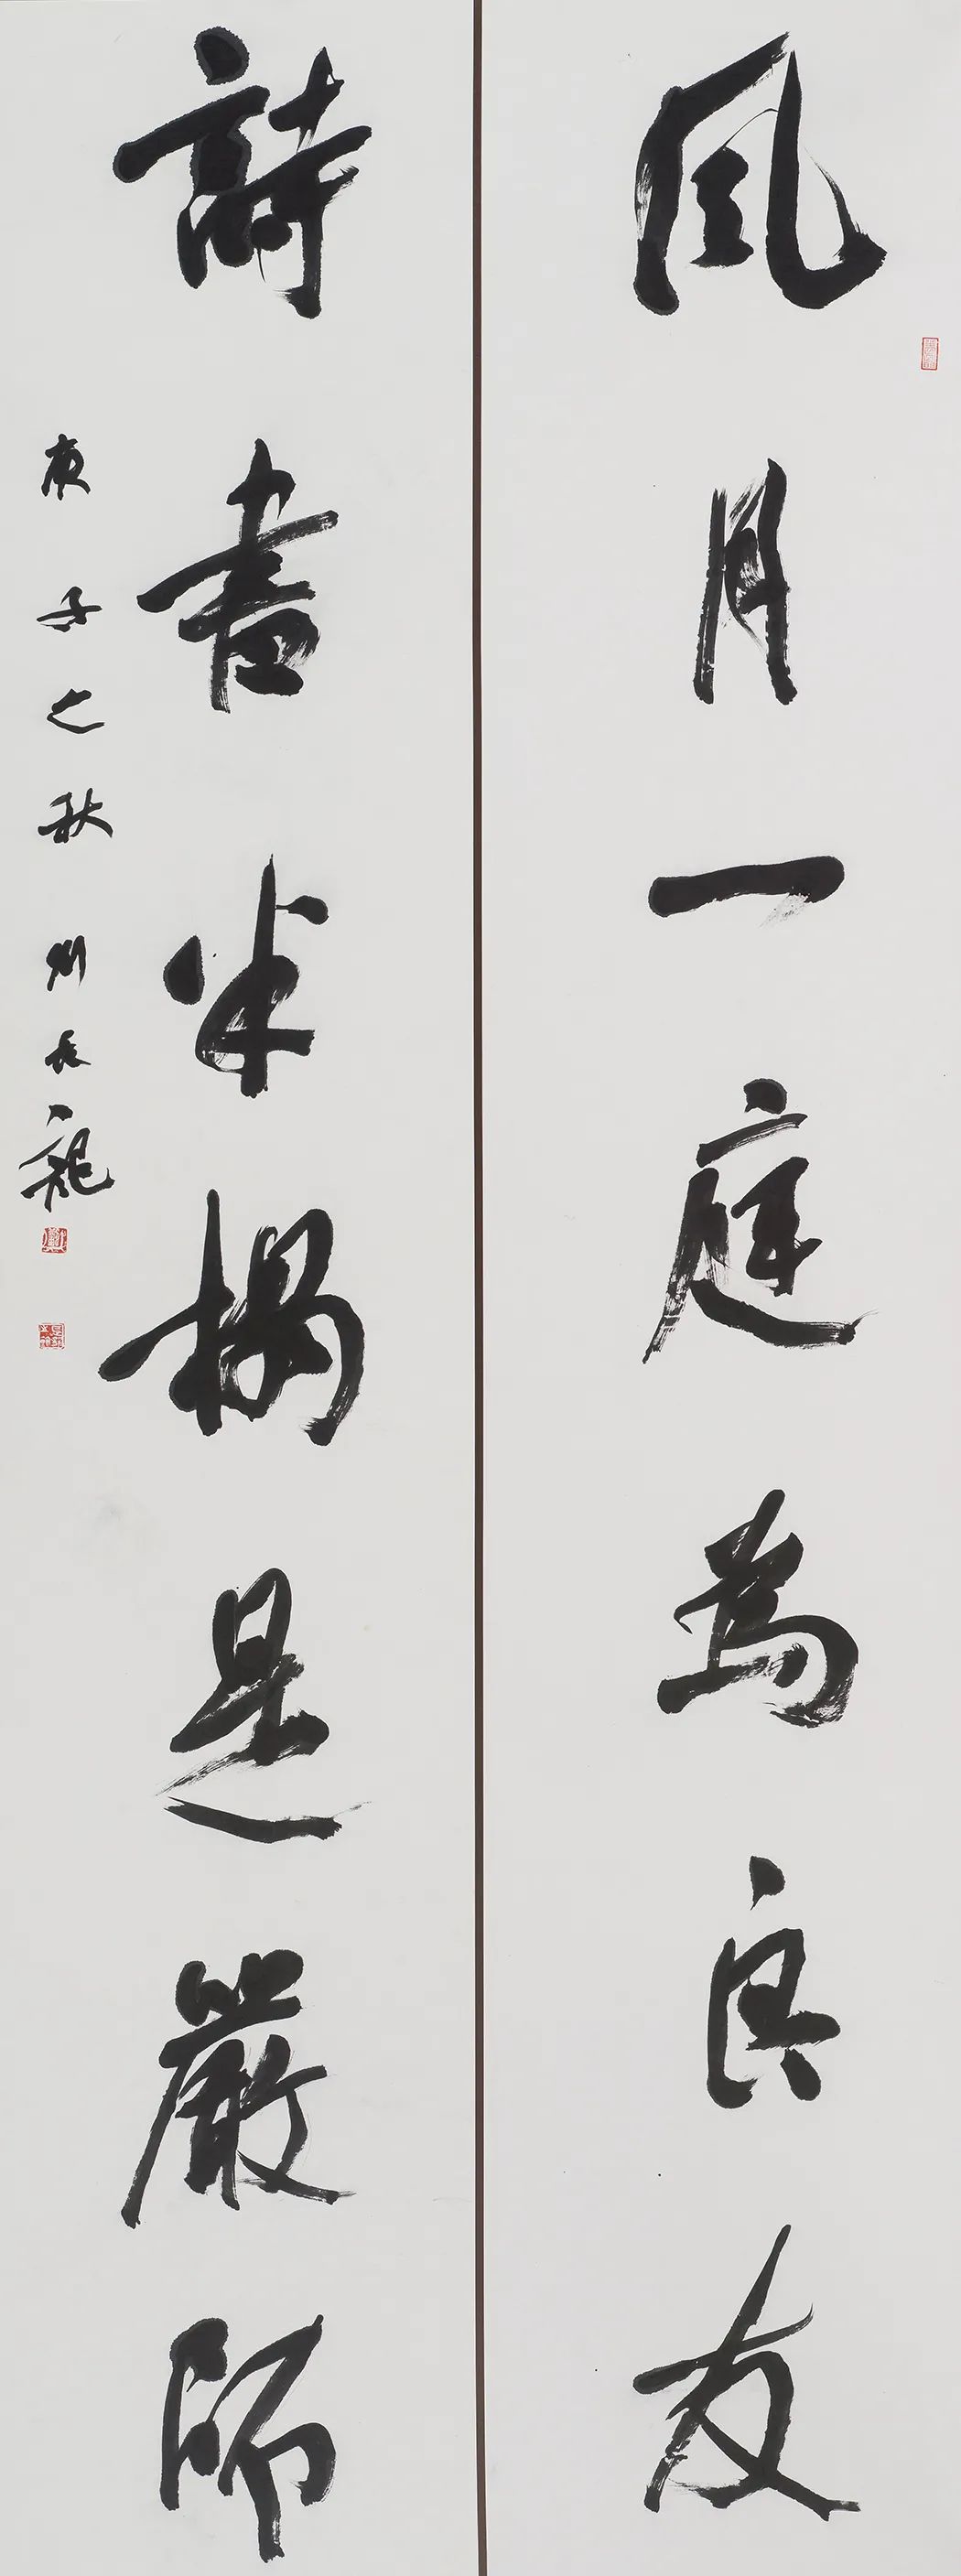 風月一庭為良友
詩書半榻是嚴師
庚子之秋 劉長龍